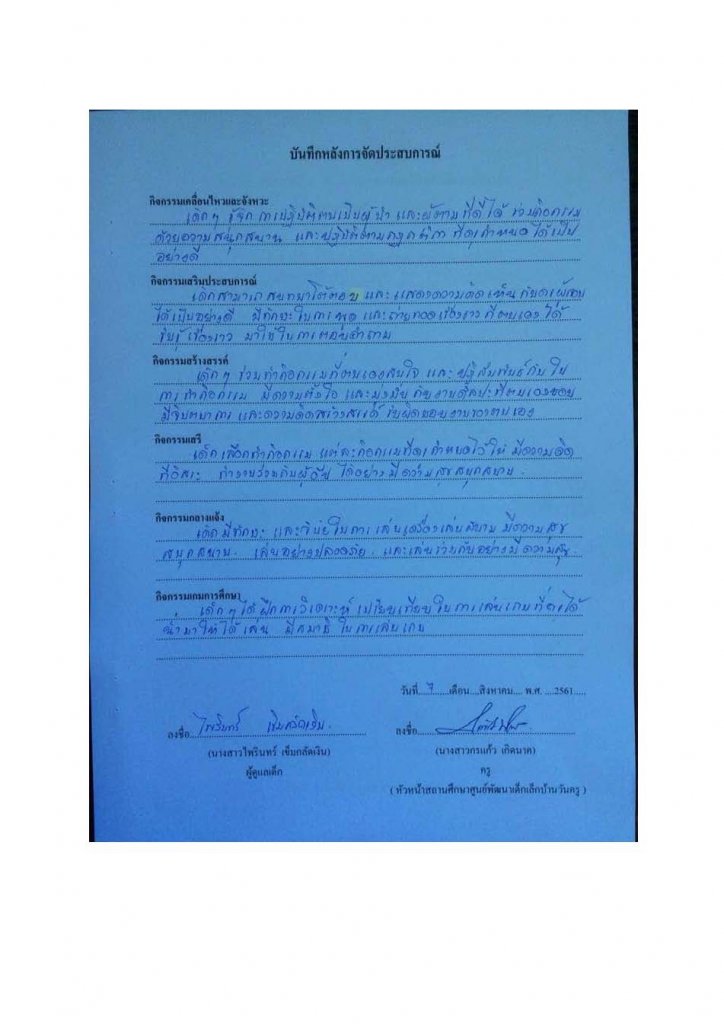 บันทึกหลังการจัดประสบการณ์
กิจกรรมเคลื่อนไหวและจังหวะ
เด็กๆ รู้จักการปฏิบัติตนเป็นผู้นำ และผู้ตามที่ดีได้ ร่วมกิจกรรม
ด้วยความสนุกสนาน และปฏิบัติตามกฎกติกา ที่ครูกำหนดได้เป็น
อย่างดี
กิจกรรมเสริมประสบการณ์
เด็กสามารถสนทนาโต้ตอบ และแสดงความคิดเห็นกับครูผู้สอน
ได้เป็นอย่างดี มีทักษะในการพูด และถ่ายทอดเรื่องราวที่ตนเองได้
รับรู้เรื่องราว มาใช้ในการตอบคำถาม
กิจกรรมสร้างสรรค์
เด็กๆ ร่วมทำกิจกรรมที่ตนเองสนใจ และปฏิสัมพันธ์กันใน
การทำกิจกรรม มีความตั้งใจ และมุ่งมั่นกับงานศิลปะที่ตนเองชอบ
มีจินตนาการ และความคิดสร้างสรรค์ รับผิดชอบงานของตนเอง
กิจกรรมเสรี
เด็กเลือกทำกิจกรรม แต่ละกิจกรรมที่ครูกำหนดไว้ให้ มีความคิด
ที่อิสระ ทำงานร่วมกับผู้อื่น ได้อย่างมีความสุขสนุกสนาน
กิจกรรมกลางแจ้ง
เด็กมีทักษะ และวินัยในการเล่นเครื่องเล่นสนาม มีความสุข
สนุกสนาน เล่นอย่างปลอดภัย และเล่นร่วมกันอย่างมีความสุข
กิจกรรมเกมการศึกษา
เด็กๆ ได้ฝึกการวิเคราะห์ เปรียบเทียบในการเล่นเกมที่ครูได้
นำมาให้ได้เล่น มีสมาธิในการเล่นเกม
วันที่ 7 เดือน สิงหาคม พ.ศ. 2561
ลงชื่อ ไพรินทร์ เข็มกลัดเงิน ลงชื่อ
(นางสาวไพรินทร์ เข็มกลัดเงิน) (นางสาวกรแก้ว เกิดนาค)
ผู้ดูแลเด็ก ครู
( หัวหน้าสถานศึกษาศูนย์พัฒนาเด็กเล็กบ้านวันครู )